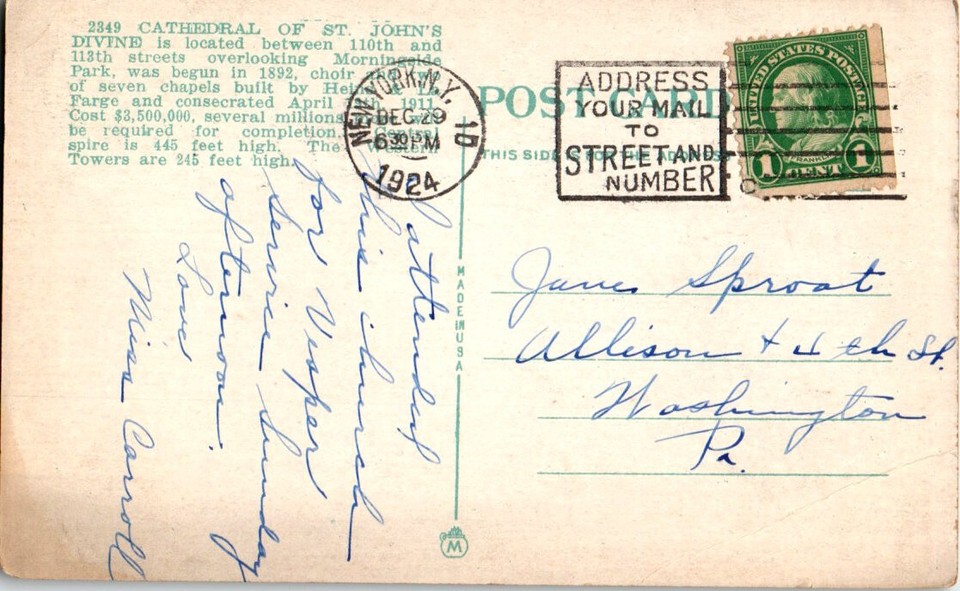 2349 CATHEDRAL OF ST. JOHN'S
DIVINE is located between 110th and
113th streets overlooking Morningside
Park, was begun in 1892, choir
of seven chapels built by
Farge and consecrated April 1911.
Cost $3,500,000, several millions
be required for completion. Central
spire is 445 feet high. The Western
Towers are 245 feet high.
NEW YORK, N.Y. 10
DEC 29
6 30 PM
1924
POST CARD
THIS SIDE IS FOR THE ADDRESS
ADDRESS
YOUR MAIL
TO
STREET AND
NUMBER
UNITED STATES POSTAGE
FRANKLIN
1 CENT 1
I attended
this church
for Vesper
service Sunday
afternoon.
Love
Miss Carroll
MADE IN USA
M
James Sproat
Allison + 4th St.
Washington
Pa.